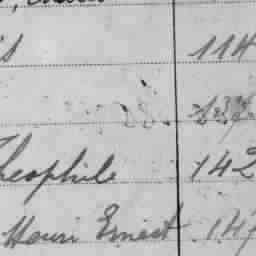 s 114
137
Theophile 142
Henri Ernest 147